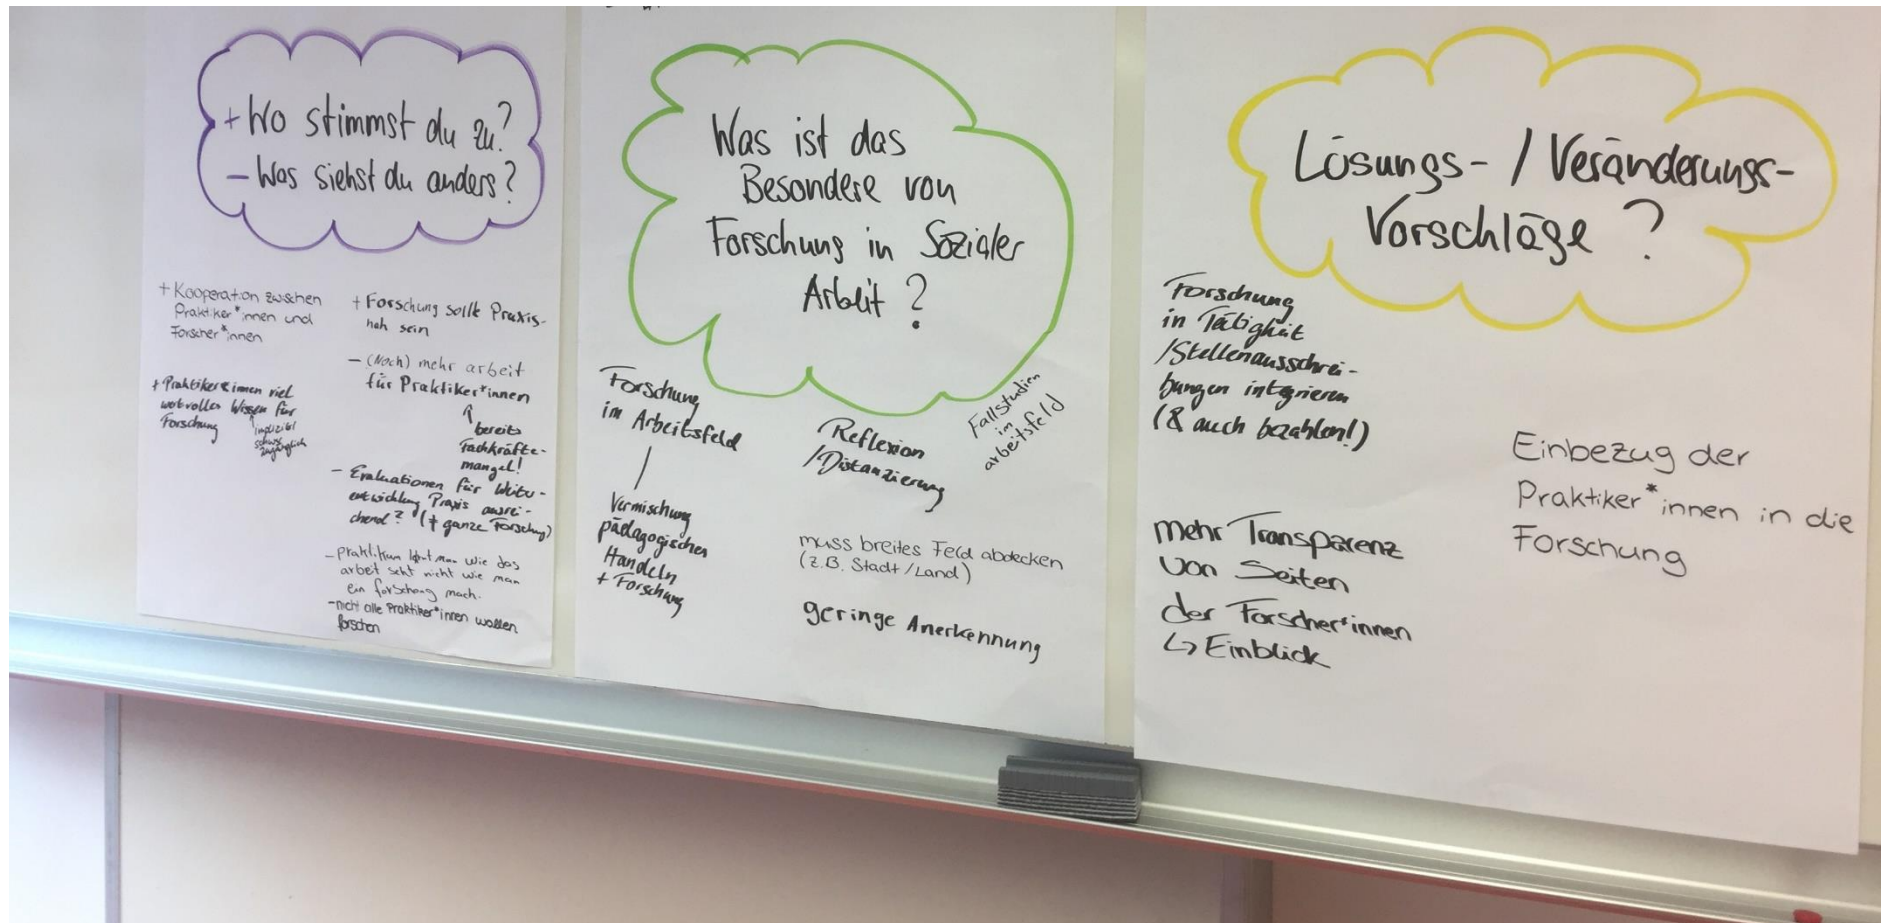 + Wo stimmst du zu?
- Was siehst du anders?
+ Kooperation zwischen
Praktiker*innen und
Forscher*innen
+ Praktiker*innen viel
wertvolles Wissen für
Forschung
implizit!
schwer
zugänglich
+ Forschung sollte Praxis-
nah sein
- (Noch) mehr arbeit
für Praktiker*innen
bereits
Fachkräfte-
mangel!
- Evaluationen für Weiter-
entwicklung Praxis ausrei-
chend? (≠ ganze Forschung)
- praktikum lernt man wie das
arbeit seht nicht wie man
ein forschung mach.
- nicht alle Praktiker*innen wollen
forschen
Was ist das
Besondere von
Forschung in Sozialer
Arbeit?
Forschung
im Arbeitsfeld
Vermischung
pädagogisches
Handeln
+ Forschung
Reflexion
/Distanzierung
Fallstudien
im
arbeitsfeld
muss breites Feld abdecken
(z.B. Stadt/Land)
geringe Anerkennung
Lösungs- / Veränderungs-
Vorschläge?
Forschung
in Tätigkeit
/Stellenausschrei-
bungen integrieren
(& auch bezahlen!)
mehr Transparenz
von Seiten
der Forscher*innen
↳ Einblick
Einbezug der
Praktiker*innen in die
Forschung